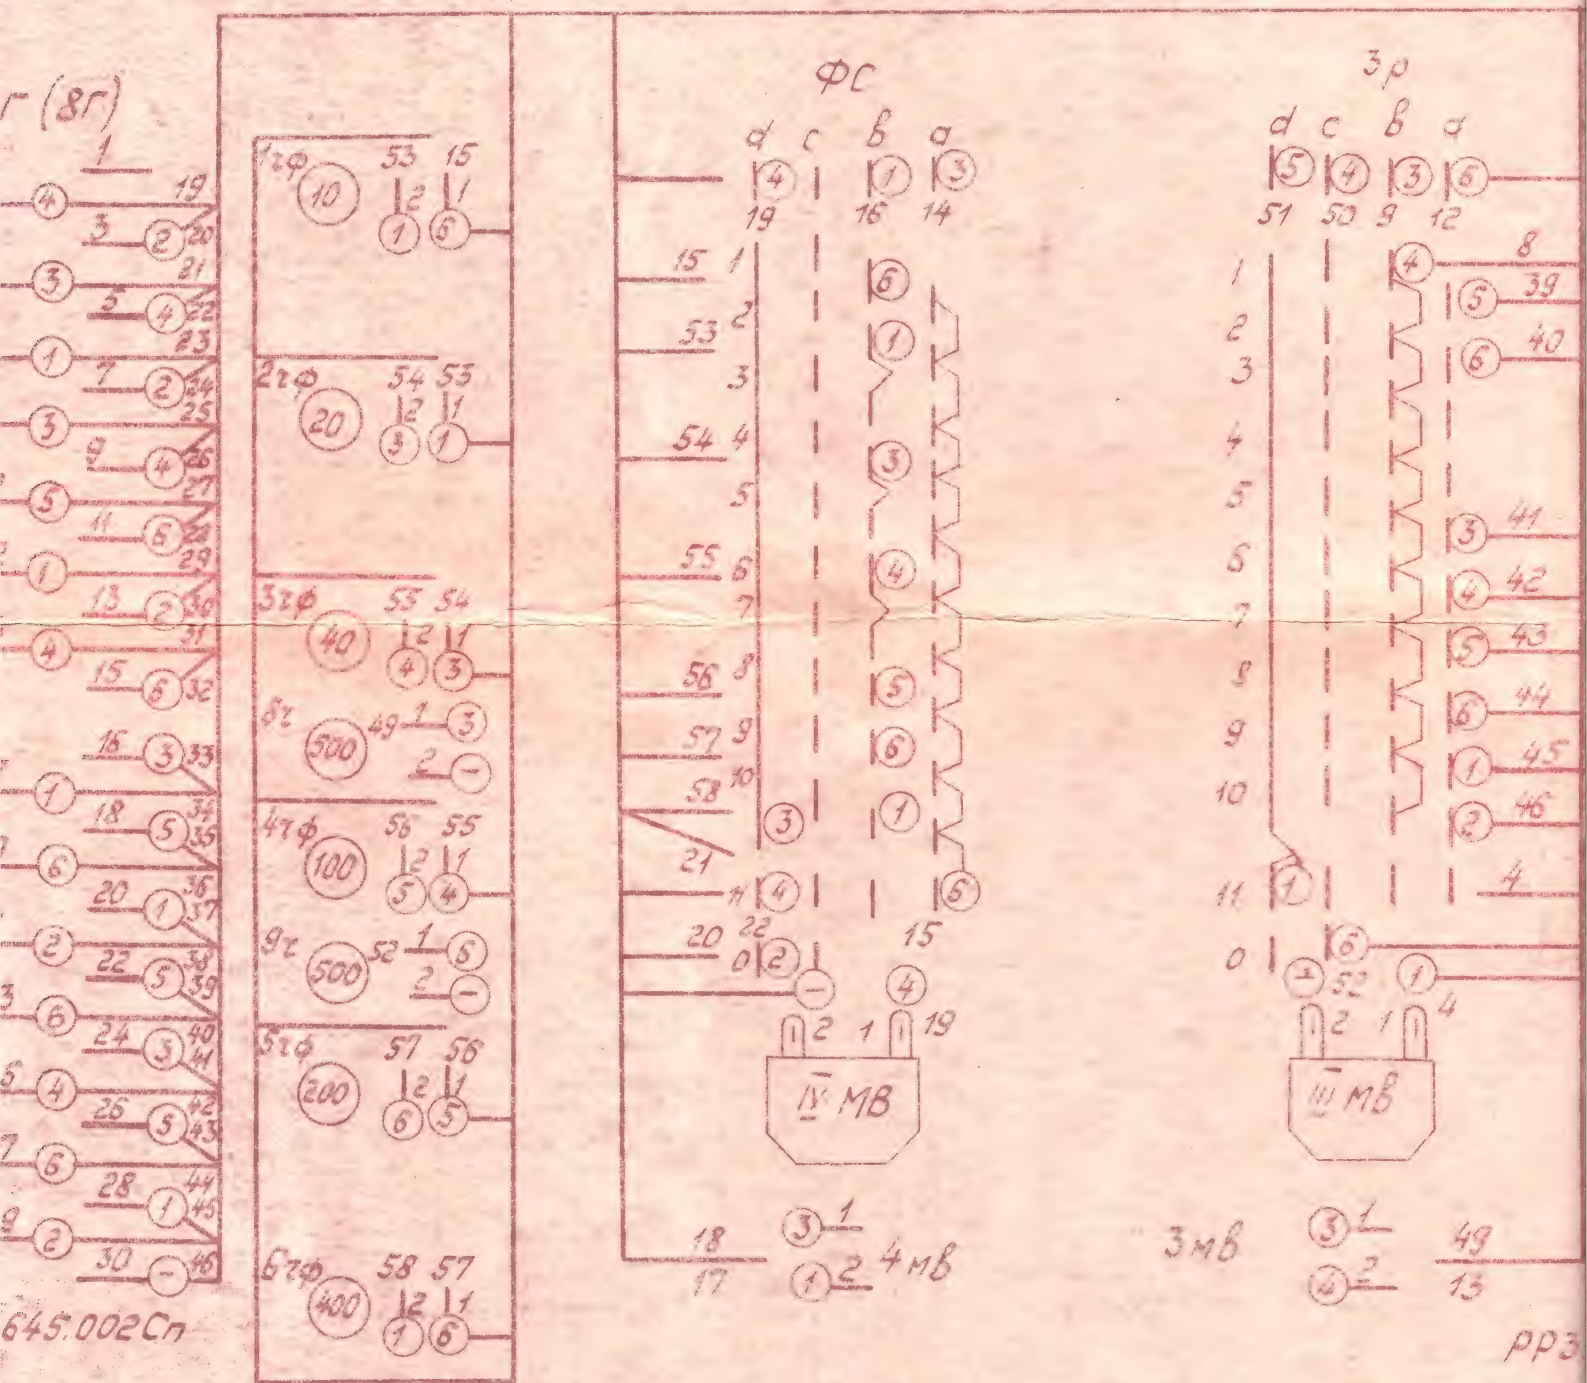 г (8г)
1
4 19
3 2 20
3 21
5 4 22
1 23
7 2 24
3 25
9 4 26
5 27
11 6 28
1 29
13 2 30
4 31
15 6 32
16 3 33
1 34
18 5 35
6 36
20 1 37
2 38
22 5 39
6 40
24 3 41
4 42
26 5 43
6 44
28 1 45
2
30 – 46
645.002Сп
1гф 10 53 15
2 1
1 6
2гф 20 54 53
2 1
3 1
3гф 40 55 54
2 1
4 3
8г 500 49 1 3
2 –
4гф 100 56 55
2 1
5 4
9г 500 52 1 6
2 –
5гф 200 57 56
2 1
6 5
6гф 400 58 57
2 1
1 6
ФС
d c в a
4 1 3
19 16 14
15 1 6
2
53 1
3
54 4 3
5
55 6 4
7
56 8 5
57 9 6
10
58 3 1
21
11 4 6
20 22 15
0 2
– 4
2 1 19
IV МВ
3 1
18
17
1 2 4 мв
3р
d c в a
5 4 3 6
51 50 9 12
1 4 8
5 39
2
6 40
3
4
5
3 41
6 4 42
7 5 43
8
6 44
9 1 45
10 2 46
11 1 4
0 6
52 1
2 1 4
III МВ
3мв
3 1
4 2
49
13
РРЗ